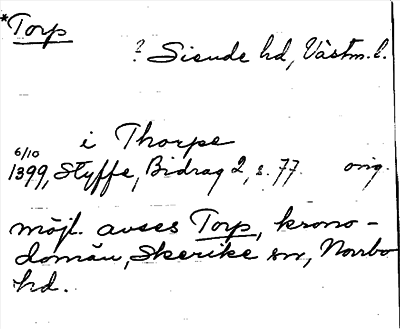 *Torp
? Siende hd, Västm. l.
i Thorpe
6/10
1399, Styffe, Bidrag 2, s. 77. orig.
möjl. avses Torp, krono-
domän, Skerike sn, Norrbo
hd.